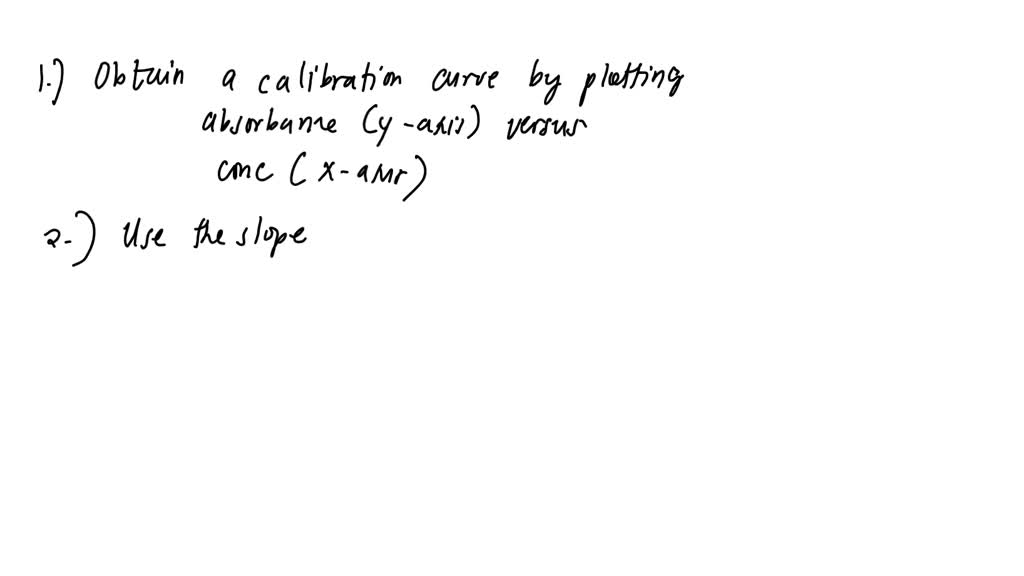 1.) Obtain a calibration curve by plotting
absorbance (y-axis) versus
conc (x-axis)
2.) Use the slope